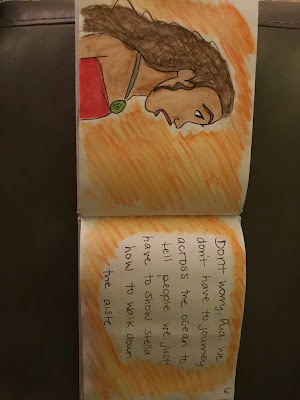 Don't worry, Pua we
don't have to journey
across the ocean to
tell people we just
have to show stella
how to walk down
the aisle
6